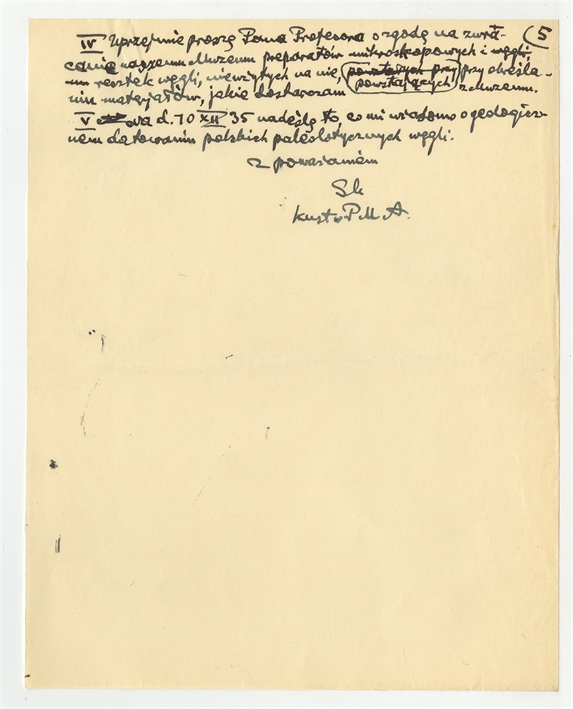 5
IV Uprzejmie proszę Pana Profesora o zgodę na zwra-
canie naszemu Muzeum preparatów mikroskopowych i węgli,
resztek węgli, niezużytych na nie, powstałych przy przy określa-
niu materjałów, jakie dostarczam powstających z Muzeum.
V Na d. 10 XII 35 nadeślę to, co mi wiadomo o geologicz-
nem datowaniu polskich paleolitycznych węgli.
z poważaniem
Sk
kust. P.M.A.